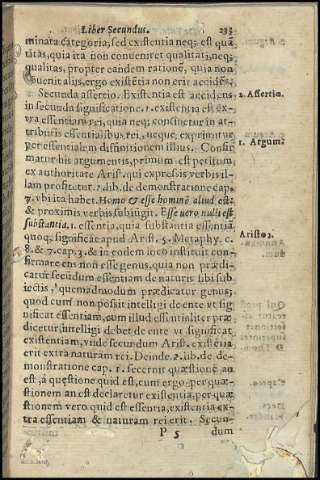 Liber Secundus. 233
minata categoria, sed existentia neq; est quã
titas, quia ita non conueniret qualitati, neq;
qualitas, propter eandem rationẽ, quia non
conuenit alijs, ergo existẽtia non erit accidẽs.
Secunda assertio. Existentia est accidens
in secunda significatione. i. existentia est ex-
tra essentiam rei, quia neq; constituitur in at-
tributis essentialibus rei, neque exprimitur
per essentialem diffinitionem illius. Confir
matur his argumentis, primum est petitum
ex authoritate Arist. qui expressis verbis il-
lam profitetur. 2. lib. de demonstratione cap.
7. vbi ita habet. Homo & esse hominẽ aliud est:
& proximis verbis subiũgit. Esse vero nulli est
substantia. i. essentia, quia substantia essentiã
quoq; significat apud Arist. 5. Metaphy. c.
8. & 7. cap. 3. & in eodem loco instituit con-
firmare ens non esse genus, quia non prædi-
catur secundum essentiam de naturis sibi sub
iectis, quemadmodum prædicatur genus;
quod cum non possit intelligi de ente vt sig
nificat essentiam, cum illud essentialiter præ
dicetur, intelligi debet de ente vt significat
existentiam, vnde secundum Arist. existẽtia
erit extra naturam rei. Deinde. 2. lib. de de-
monstratione cap. 1. secernit quæstionẽ an
est, à quęstione quid est, cum ergo per quæ-
stionem an est declaretur existentia, per quæ
stionem vero quid est essentia, existentia ex-
tra essentiam & naturam rei erit. Secun-
P 5 dum
2. Assertio.
1. Argum?
Aristo3.